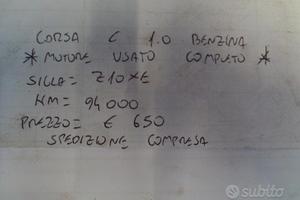 CORSA C 1.0 BENZINA
* MOTORE USATO COMPLETO *
SIGLA = Z10XE
KM = 94000
PREZZO = € 650
SPEDIZIONE COMPRESA
subito